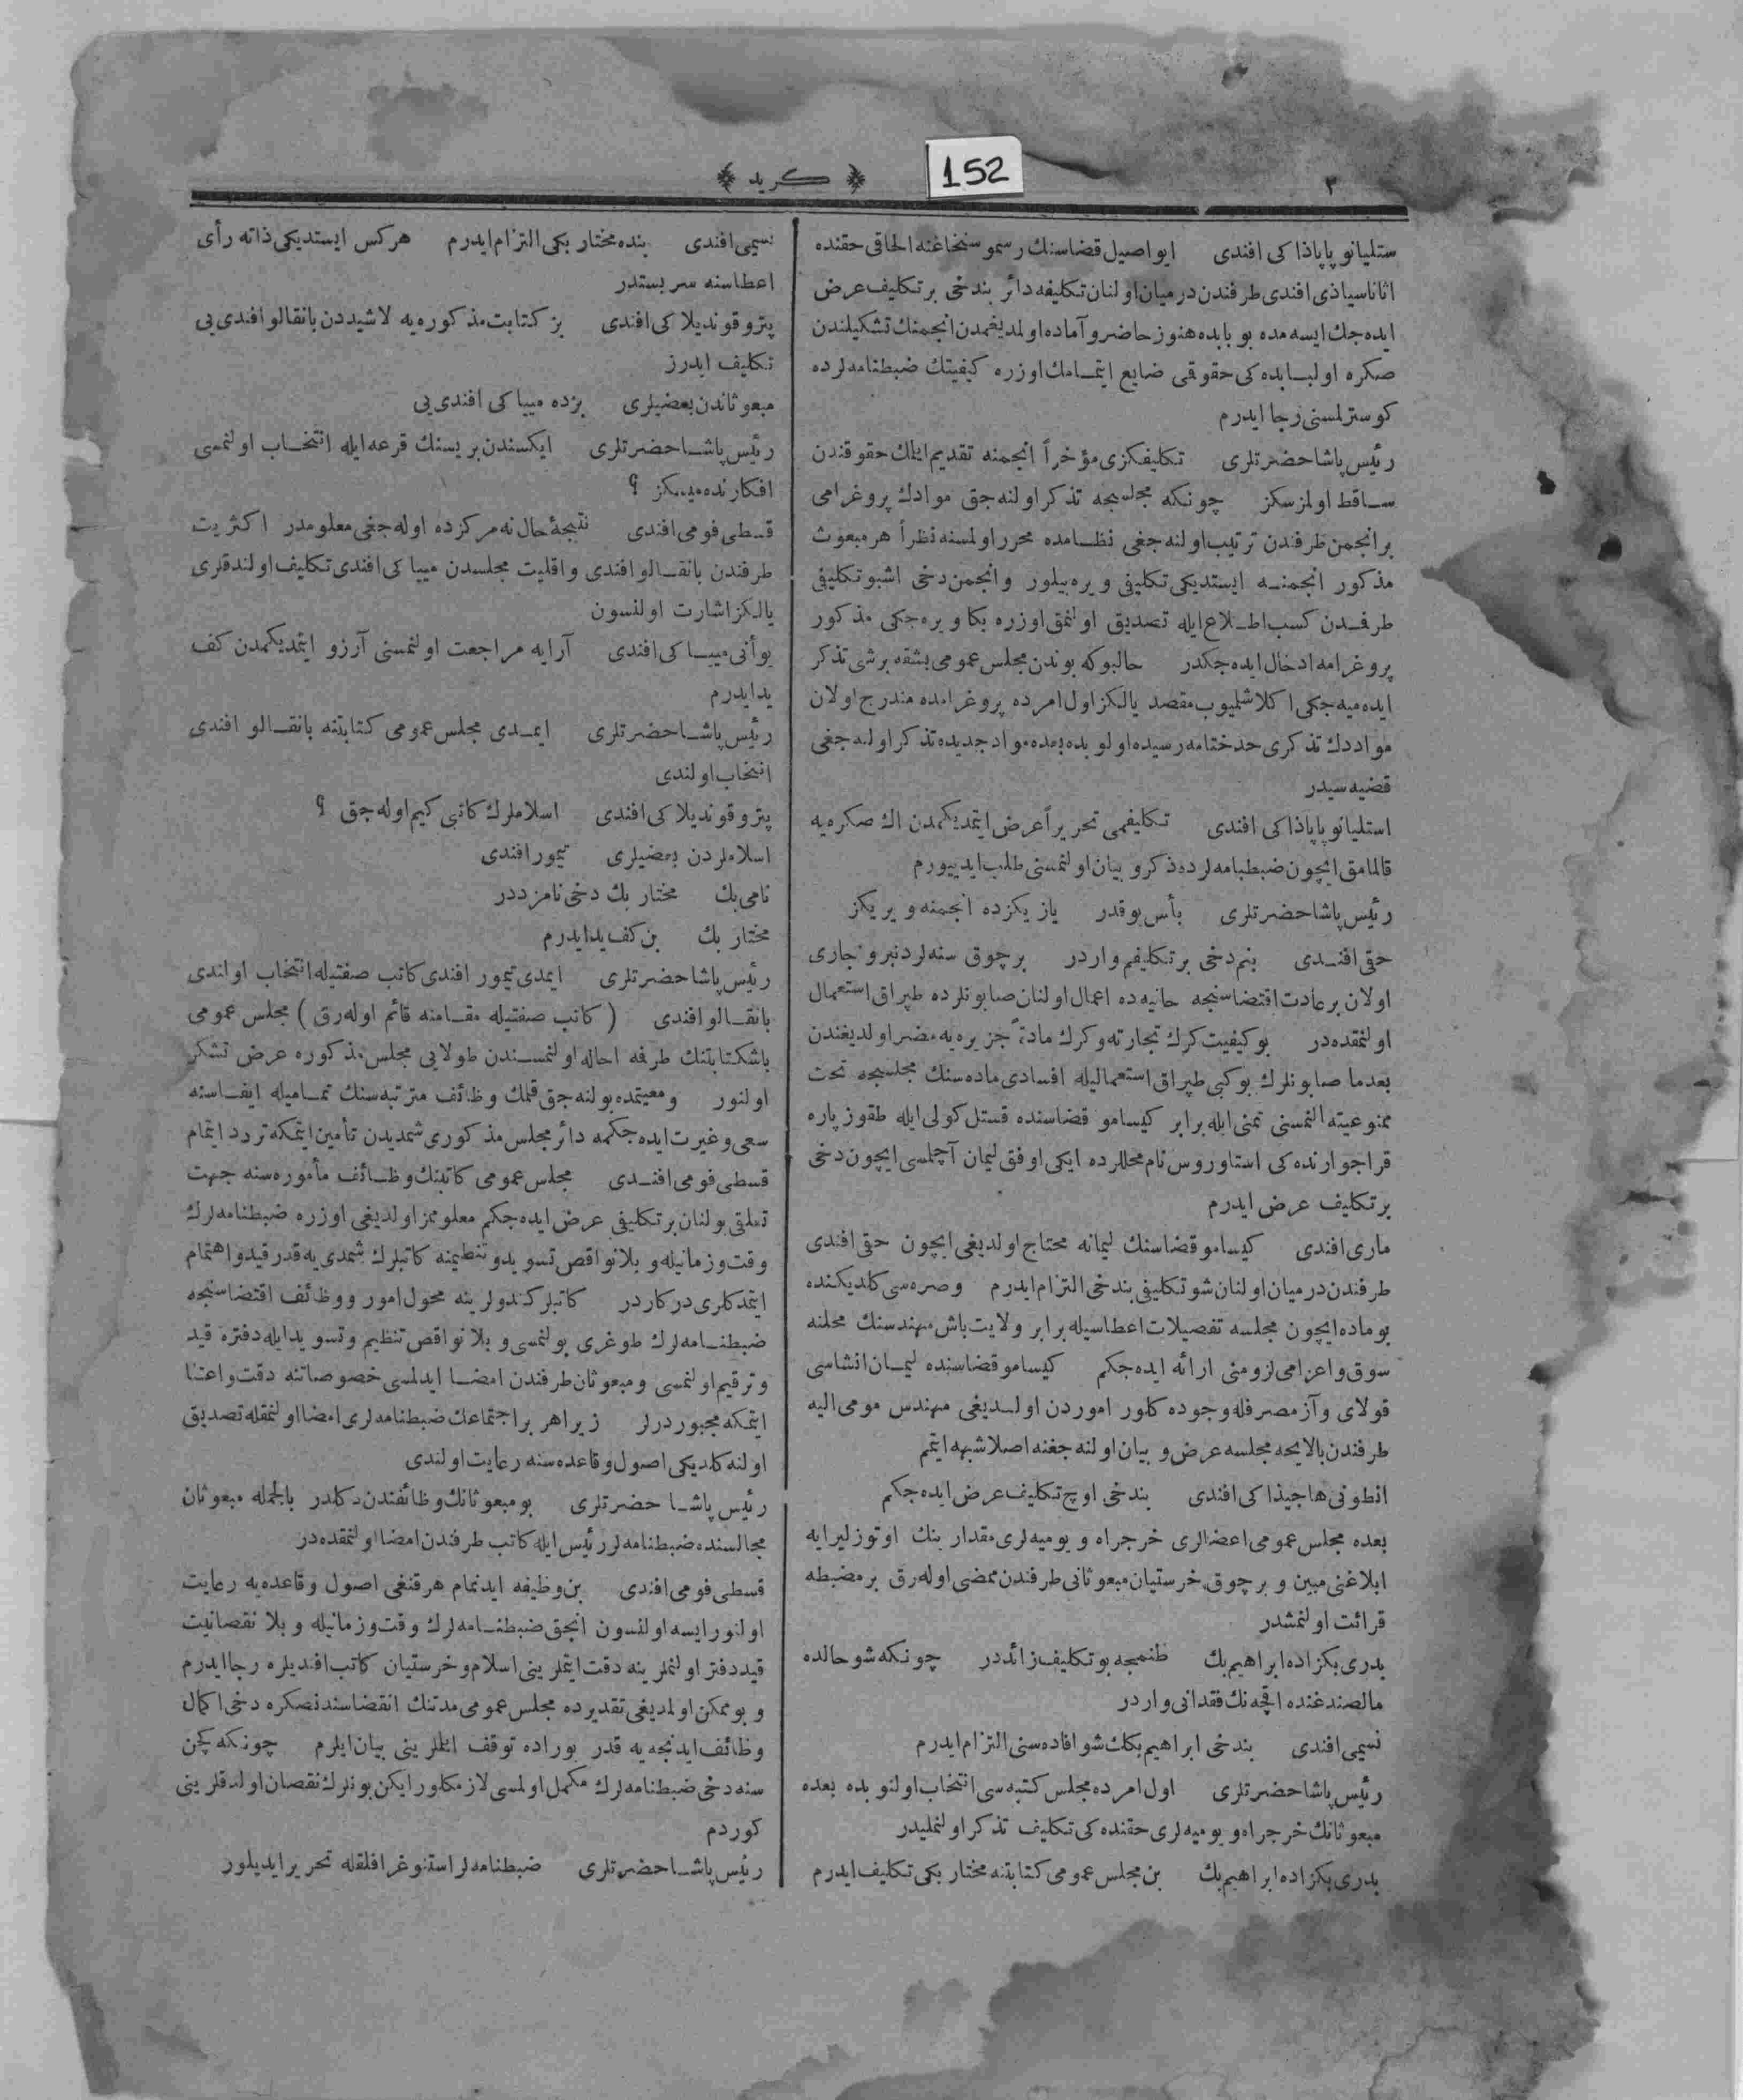 ٢
﴿ كريد ﴾
152
ستليانو پاپاذا كی افندی ايواصيل قضاسنك رسمو سنجاغنه الحاقی حقنده
اثاناسياذی افندی طرفندن درميان اولنان تكليفه دائر بندخی بر تكليف عرض
ايده‌جك ايسه‌مده بو بابده هنوز حاضر و آماده اولمديغمدن انجمنك تشكيلندن
صكره اولبــابده‌كی حقوقی ضايع ايتمــامك اوزره كيفيتك ضبطنامه‌لرده
كوسترلمسنی رجا ايدرم
رئيس پاشا حضرتلری تكليفكزی مؤخراً انجمنه تقديم ايتمك حقوقندن
ســاقط اولمزسكز چونكه مجلسجه تذكر اولنه‌جق موادك پروغرامی
بر انجمن طرفندن ترتيب اولنه‌جغی نظــامده محرر اولمسنه نظراً هر مبعوث
مذكور انجمنــه ايستديكی تكليفی ويره‌بيلور وانجمن دخی اشبو تكليفی
طرفــدن كسب اطــلاع ايله تصديق اولنمق اوزره بكا ويره‌جكی مذكور
پروغرامه ادخال ايده‌جكدر حالبوكه بوندن مجلس عمومی بشقه برشی تذكر
ايده‌ميه‌جكی اكلاشلميوب مقصد يالكز اول امرده پروغرامده مندرج اولان
مواددك تذكری حد ختامه رسيده اولوبده بعده مواد جديده تذكر اولنه‌جغی
قضيه‌سيدر
استليانو پاپاذا كی افندی تكليفمی تحريراً عرض ايتمديكمدن اك صكره‌يه
قالمامق ايچون ضبطنامه‌لرده ذكر و بيان اولنمسنی طلب ايدييورم
رئيس پاشا حضرتلری بأس يوقدر يازيكزده انجمنه ويريكز
حقی افنــدی بنم دخی بر تكليفم واردر بر چوق سنه‌لردنبرو جاری
اولان بر عادت اقتضاسنجه حانيه‌ده اعمال اولنان صابونلرده طپراق استعمال
اولنمقده‌در بو كيفيت كرك تجارته و كرك مادةً جزيره‌يه مضر اولديغندن
بعدما صابونلرك بو كبی طپراق استعماليله افسادی ماده‌سنك مجلسجه تحت
ممنوعيته النمسنی تمنی ايله برابر كيسامو قضاسنده قستل كولی ايله طقوز پاره
قراجوارنده‌كی استاوروس نام محللرده ايكی اوفق ليمان آچلمسی ايچون دخی
بر تكليف عرض ايدرم
ماری افندی كيسامو قضاسنك ليمانه محتاج اولديغی ايچون حقی افندی
طرفندن درميان اولنان شو تكليفی بندخی التزام ايدرم وصره‌سی كلديكنده
بو ماده ايچون مجلسه تفصيلات اعطاسيله برابر ولايت باش مهندسنك محلنه
سوق و اعزامی لزومنی ارائه ايده‌جكم كيسامو قضاسنده ليمــان انشاسی
قولای و آز مصرفله وجوده كلور اموردن اولــديغی مهندس مومی اليه
طرفندن بالايحه مجلسه عرض و بيان اولنه‌جغنه اصلا شبهه ايتمم
انطونی هاجيذا كی افندی بندخی اوچ تكليف عرض ايده‌جكم
بعده مجلس عمومی اعضالری خرجراه و يوميه‌لری مقدار ينك اوتوز ليرايه
ابلاغنی مبين و بر چوق خرستيان مبعوثانی طرفندن ممضی اوله‌رق بر مضبطه
قرائت اولنمشدر
بدری بكزاده ابراهيم بك ظنمجه بو تكليف زائددر چونكه شو حالده
مالصندغنده اقچه‌نك فقدانی واردر
نسيمی افندی بندخی ابراهيم بكك شو افاده‌سنی التزام ايدرم
رئيس پاشا حضرتلری اول امرده مجلس كتبه‌سی انتخاب اولنوبده بعده
مبعوثانك خرجراه و يوميه‌لری حقنده‌كی تكليف تذكر اولنمليدر
بدری بكزاده ابراهيم بك بن مجلس عمومی كتابتنه مختار بكی تكليف ايدرم
نسيمی افندی بنده مختار بكی التزام ايدرم هركس ايستديكی ذاته رأی
اعطاسنه سربستدر
پترو قونديلا كی افندی بز كتابت مذكوره‌يه لاشيددن بانقالو افندی‌يی
تكليف ايدرز
مبعوثاندن بعضيلری بزده ميبا كی افندی‌يی
رئيس پاشــا حضرتلری ايكسندن بريسنك قرعه ايله انتخــاب اولنمسی
افكارنده‌ميسكز ؟
قســطی فومی افندی نتيجۀ حال نه مركزده اوله‌جغی معلومدر اكثريت
طرفندن بانقــالو افندی و اقليت مجلسدن ميبا كی افندی تكليف اولندقلری
يالكز اشارت اولنسون
يوأنی ميبــا كی افندی آرايه مراجعت اولنمسنی آرزو ايتمديكمدن كف
يد ايدرم
رئيس پاشــا حضرتلری ايمــدی مجلس عمومی كتابتنه بانقــالو افندی
انتخاب اولندی
پترو قونديلا كی افندی اسلاملرك كاتبی كيم اوله‌جق ؟
اسلاملردن بعضيلری تيمور افندی
نامی بك مختار بك دخی نامزددر
مختار بك بن كف يد ايدرم
رئيس پاشا حضرتلری ايمدی تيمور افندی كاتب صفتيله انتخاب اولندی
بانقــالو افندی ( كاتب صفتيله مقــامنه قائم اوله‌رق ) مجلس عمومی
باشكتابتنك طرفه احاله اولنمســندن طولايی مجلس مذكوره عرض تشكر
اولنور ومعيتمده بولنه‌جق قلمك وظائف مترتبه‌سنك تمــاميله ايفــاسنه
سعی و غيرت ايده‌جكمه دائر مجلس مذكوری شمديدن تأمين ايتمكه تردد ايتمام
قسطی فومی افنــدی مجلس عمومی كاتبنك وظــائف مأموره‌سنه جهت
تعلقی بولنان بر تكليفی عرض ايده‌جكم معلومز اولديغی اوزره ضبطنامه‌لرك
وقت و زمانيله و بلانواقص تسويد و تنظيمنه كاتبلرك شمدی‌يه قدر قيد و اهتمام
ايتمدكلری دركاردر كاتبلر كندولرينه محول امور و وظائف اقتضاسنجه
ضبطنــامه‌لرك طوغری بولنمسی و بلانواقص تنظيم و تسويد ايله دفتره قيد
و ترقيم اولنمسی و مبعوثان طرفندن امضــا ايدلمسی خصوصاتنه دقت و اعتنا
ايتمكه مجبوردرلر زيرا هر بر اجتماعك ضبطنامه‌لری امضا اولنمقله تصديق
اولنه‌كلديكی اصول و قاعده‌سنه رعايت اولندی
رئيس پاشــا حضرتلری بو مبعوثانك وظائفندن دكلدر بالجمله مبعوثان
مجالسنده ضبطنامه‌لر رئيس ايله كاتب طرفندن امضا اولنمقده‌در
قسطی فومی افندی بن وظيفه ايدنمام هر قنغی اصول و قاعده‌يه رعايت
اولنور ايسه اولنسون انجق ضبطنــامه‌لرك وقت و زمانيله و بلا نقصانيت
قيد دفتر اولنملرينه دقت ايتملرينی اسلام و خرستيان كاتب افنديلره رجا ايدرم
و بو ممكن اولمديغی تقديرده مجلس عمومی مدتنك انقضاسندنصكره دخی اكمال
وظائف ايدنجه‌يه قدر بوراده توقف ايتملرينی بيان ايلرم چونكه كچن
سنه دخی ضبطنامه‌لرك مكمل اولمسی لازمكلور ايكن بونلرك نقصان اولدقلرينی
كوردم
رئيس پاشــا حضرتلری ضبطنامه‌لر استنوغرافلقله تحرير ايديلور